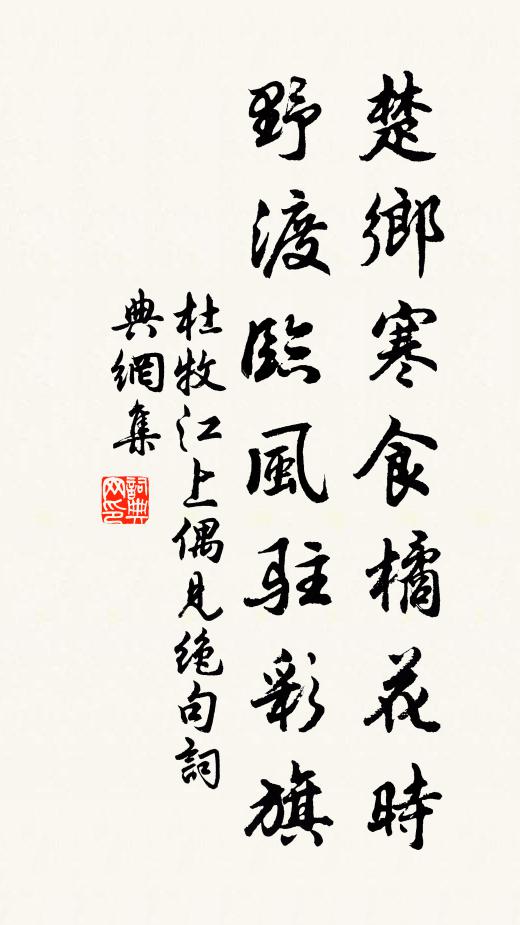 楚鄉寒食橘花時
野渡臨風駐彩旗
杜牧江上偶見絶句詞
典網集
詞典网印